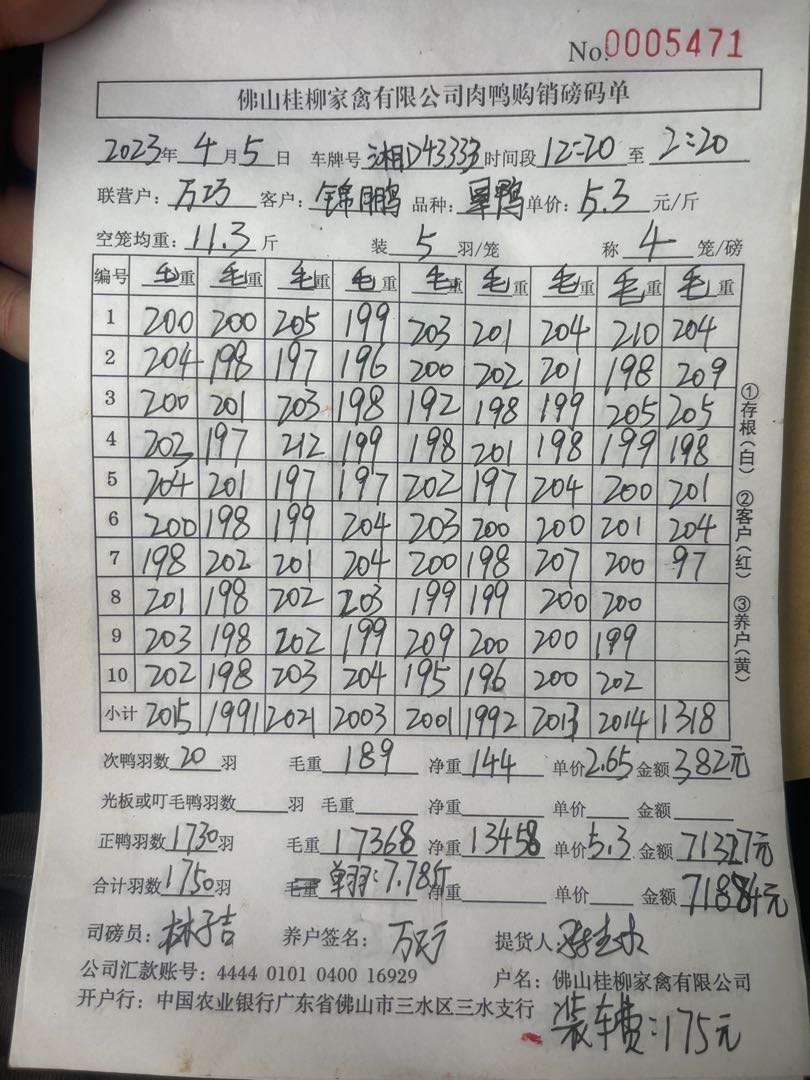 No.0005471
佛山桂柳家禽有限公司肉鸭购销磅码单
2023年 4月 5日 车牌号 湘D43333 时间段 12:20 至 2:20
联营户: 万巧 客户: 锦鹏 品种: 鸭 单价: 5.3 元/斤
空笼均重: 11.3 斤 装 5 羽/笼 称 4 笼/磅
编号 毛重 毛重 毛重 毛重 毛重 毛重 毛重 毛重 毛重
1 200 200 205 199 203 201 204 210 204
2 204 198 197 196 200 202 201 198 209
3 200 201 203 198 192 198 199 205 205
4 202 197 212 199 198 201 198 199 198
5 204 201 197 197 202 197 204 200 201
6 200 198 199 204 203 200 200 201 204
7 198 202 201 204 200 198 207 200 97
8 201 198 202 203 199 199 200 200
9 203 198 202 199 209 200 200 199
10 202 198 203 204 195 196 200 202
小计 2015 1991 2021 2003 2001 1992 2013 2014 1318
次鸭羽数 20 羽 毛重 189 净重 144 单价 2.65 金额 382元
光板或叮毛鸭羽数 羽 毛重 净重 单价 金额
正鸭羽数 1730 羽 毛重 17368 净重 13458 单价 5.3 金额 71327元
合计羽数 1750 羽 毛重 单羽:7.78斤 净重 单价 金额 71884元
司磅员: 林子吉 养户签名: 万巧 提货人:
公司汇款账号: 4444 0101 0400 16929 户名: 佛山桂柳家禽有限公司
开户行: 中国农业银行广东省佛山市三水区三水支行
装车费:175元
①存根(白) ②客户(红) ③养户(黄)